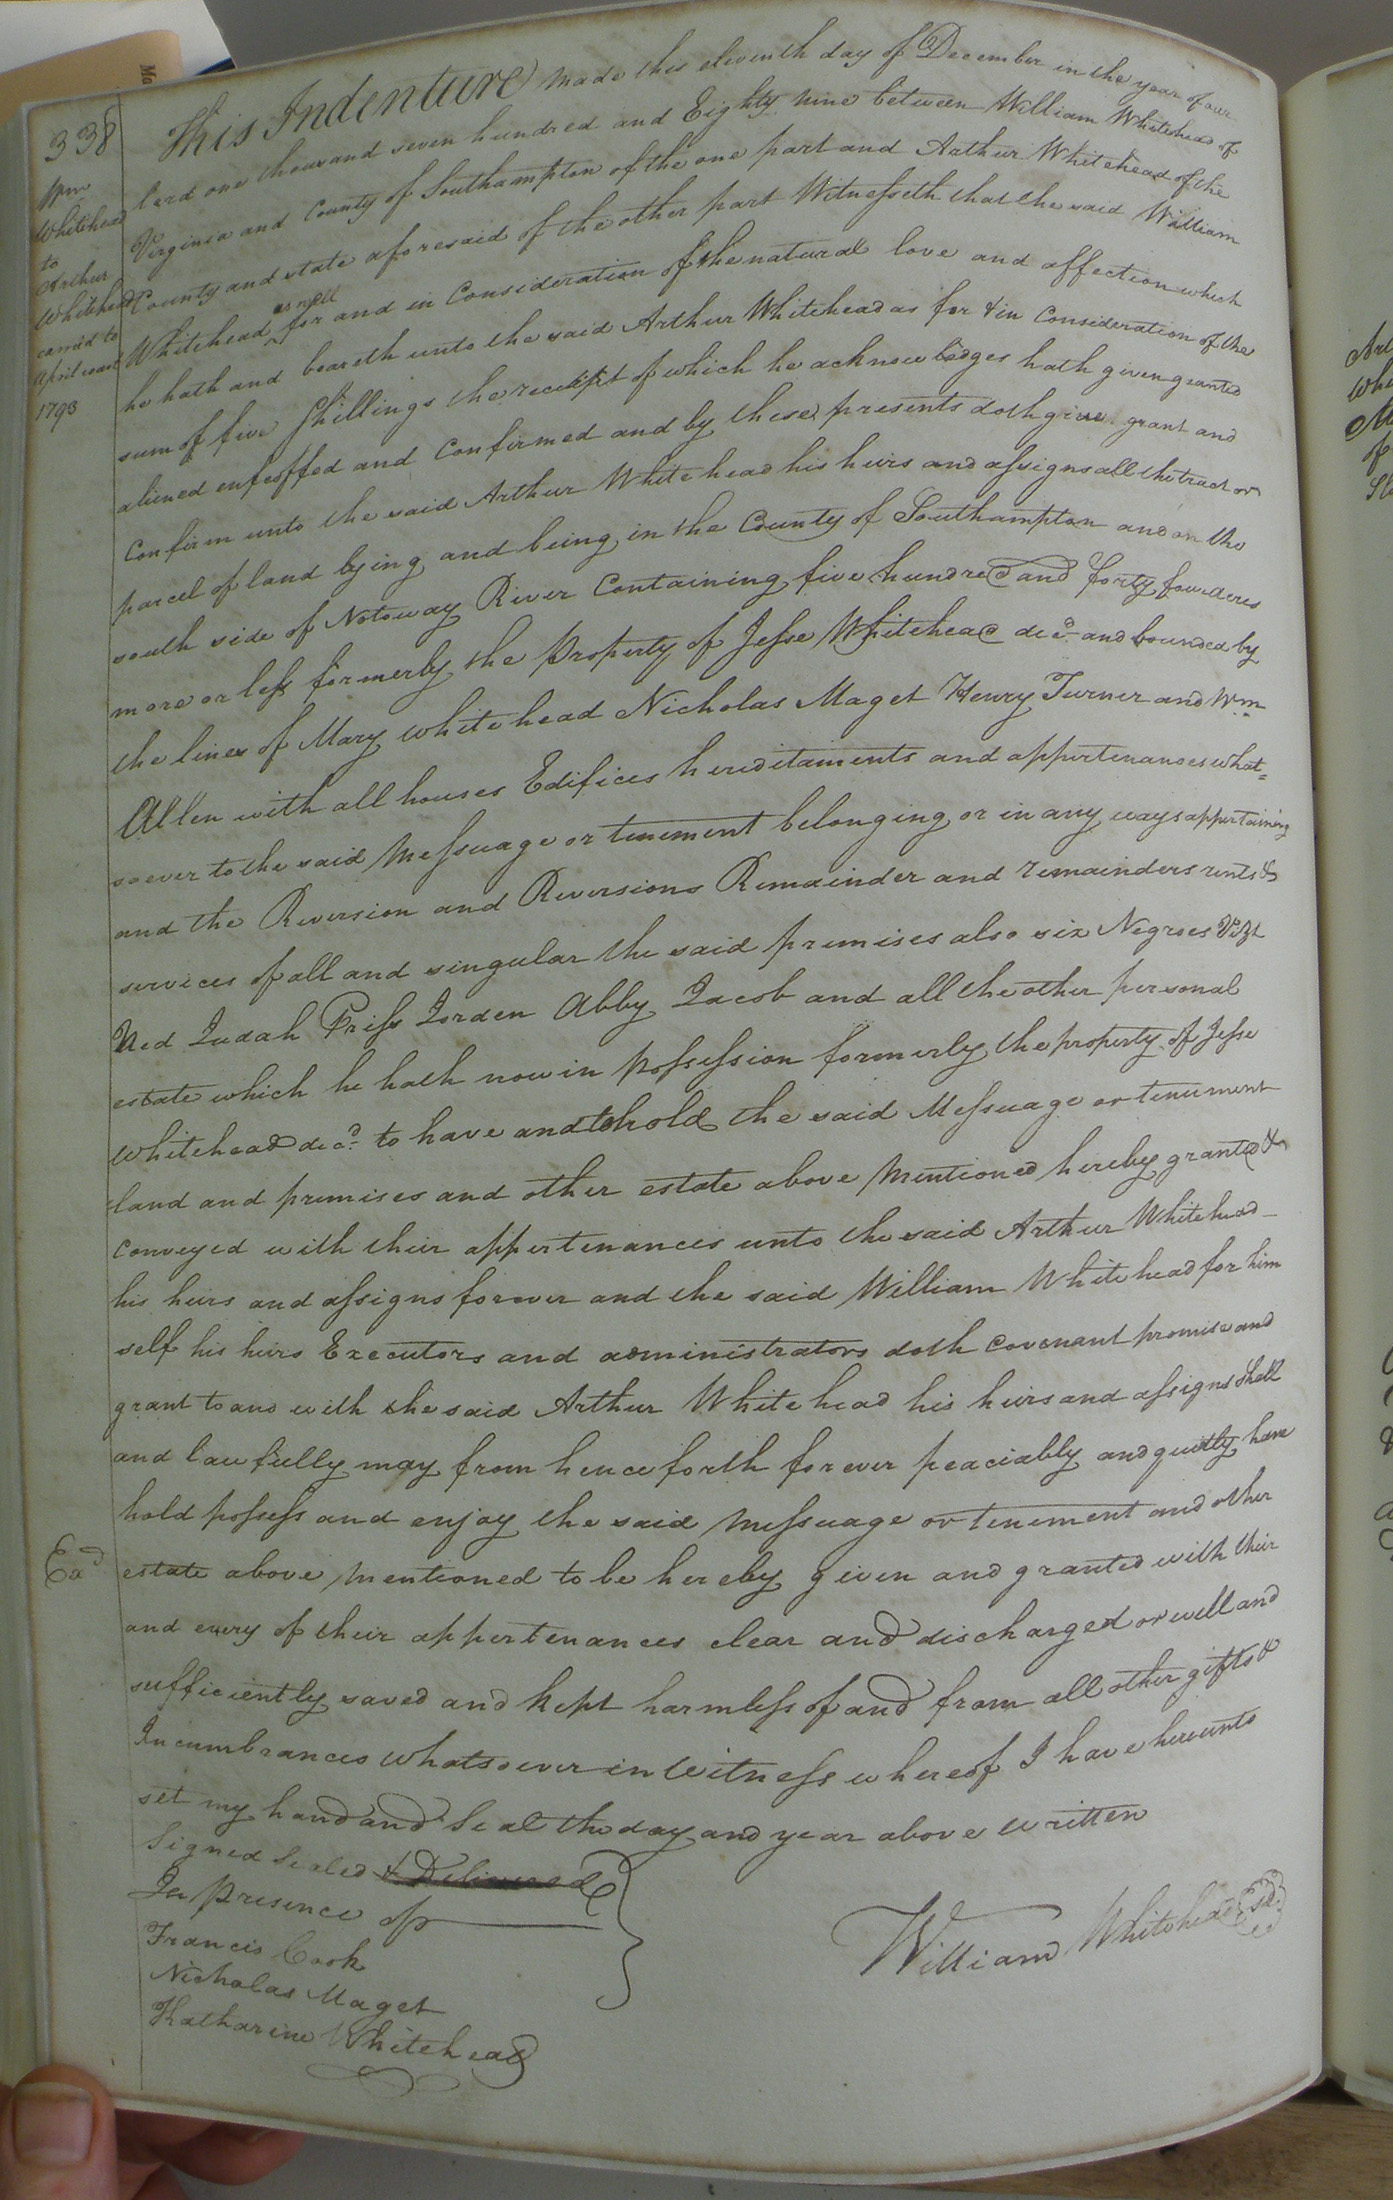 338
Wm
Whitehead
to
Arthur
Whitehead
carried to
April court
1793
This Indenture Made this eleventh day of December in the year of our
lord one thousand seven hundred and Eighty nine between William Whitehead of
Virginia and County of Southampton of the one part and Arthur Whitehead of the
County and state aforesaid of the other part Witnesseth that the said William
as well
Whitehead for and in Consideration of the natural love and affection which
he hath and beareth unto the said Arthur Whitehead as for & in Consideration of the
sum of five Shillings the receipt of which he acknowledges hath given granted
aliened enfeoffed and Confirmed and by these presents doth give grant and
Confirm unto the said Arthur Whitehead his heirs and assigns all the tract or
parcel of land lying and being in the County of Southampton and on the
south side of Notoway River Containing five hundred and forty four acres
more or less formerly the Property of Jesse Whitehead decd and bounded by
the lines of Mary Whitehead Nicholas Maget Henry Turner and Wm
Allen with all houses Edifices hereditaments and appurtenances what=
soever to the said Messuage or tenement belonging or in any ways appertaining
and the Reversion and Reversions Remainder and remainders rents &
services of all and singular the said premises also six Negroes Vizt
Ned Judah Priss Jorden Abby Jacob and all the other personal
estate which he hath now in possession formerly the property of Jesse
Whitehead decd to have and to hold the said Messuage or tenement
land and premises and other estate above Mentioned hereby granted &
Conveyed with their appertenances unto the said Arthur Whitehead
his heirs and assigns forever and the said William Whitehead for him
self his heirs Executors and administrators doth Covenant promise and
grant to and with the said Arthur Whitehead his heirs and assigns Shall
and lawfully may from hence forth for ever peaciably and quietly have
hold possess and enjoy the said Messuage or tenement and other
Exd
estate above Mentioned to be hereby given and granted with their
and every of their appertenances clear and discharged or well and
sufficiently saved and kept harmless of and from all other gifts &
Incumbrances Whatsoever in Witness whereof I have hereunto
set my hand and Seal the day and year above written
Signed Sealed & Delivered
In Presence of
William Whitehead Sd
Francis Cook
Nicholas Maget
Katharine Whitehead